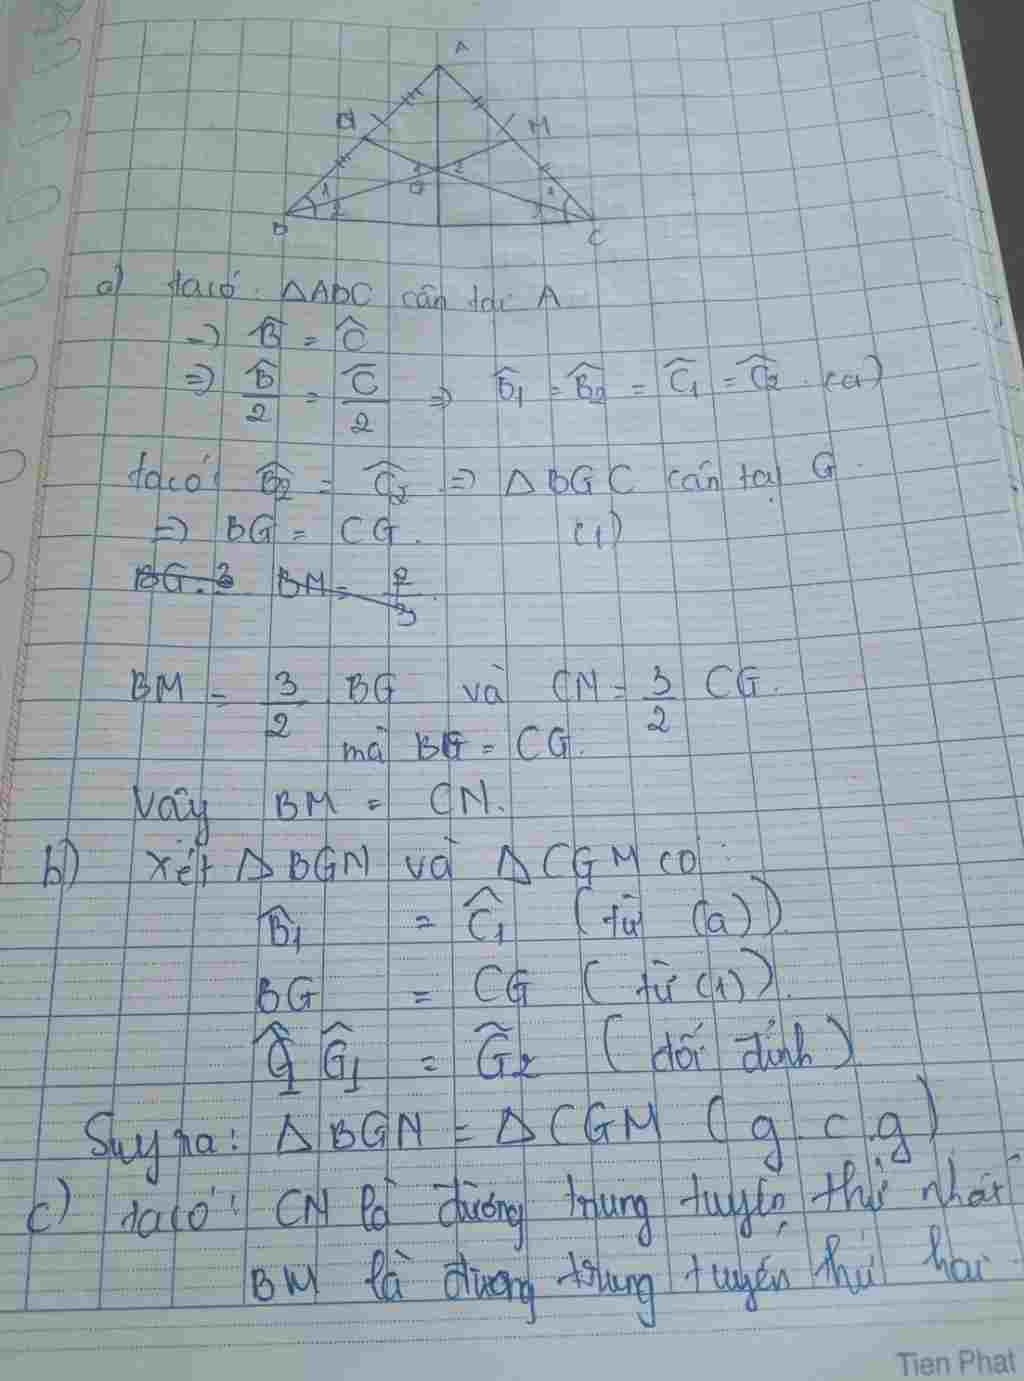 A
N
M
1
2
G
1
2
1
2
B
C
a) ta có ΔABC cân tại A
=> B̂ = Ĉ
=> B̂/2 = Ĉ/2 => B̂1 = B̂2 = Ĉ1 = Ĉ2. (a)
ta có: B̂2 = Ĉ2 => Δ BGC cân tại G.
=> BG = CG. (1)
BM = 3/2 BG và CN = 3/2 CG.
mà BG = CG.
Vậy BM = CN.
b) Xét Δ BGN và Δ CGM có:
B̂1 = Ĉ1 (từ (a))
BG = CG (từ (1)).
Ĝ1 = Ĝ2 (đối đỉnh)
Suy ra: Δ BGN = Δ CGM (g.c.g)
c) ta có: CN là đường trung tuyến thứ nhất
BM là đường trung tuyến thứ hai
Tien Phat